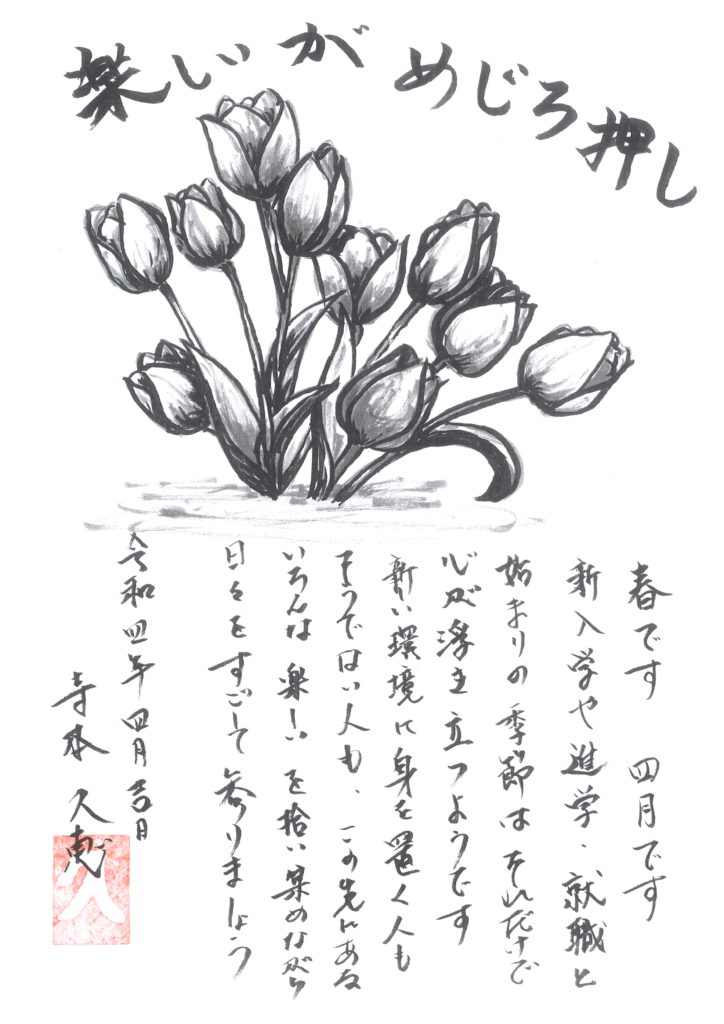 楽しいがめじろ押し
春です 四月です
新入学や進学・就職と
始まりの季節はそれだけで
心が浮き立つようです
新しい環境に身を置く人も
そうではない人も、この先にある
いろんな楽しいを拾い集めながら
日々をすごして参りましょう
令和四年四月吉日
寺本久恵
久